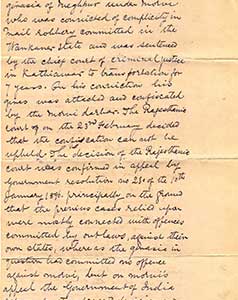 girasia of Meghpur under Morvi
who was convicted of complicity in
mail robbery committed in the
Wankaner State and was sentenced
by the chief court of criminal justice
in Kathiawar to transportation for
7 years. On his conviction his
giras was attached and confiscated
by the Morvi darbar. The Rajasthanik
court on the 23rd February decided
that the confiscation can not be
upheld. The decision of the Rajasthanik
court was confirmed in appeal by
Government resolution no
January principally on the ground
that the previous cases relied upon
were mostly connected with offences
committed by outlaws, against their
own states, whereas the girasia in
question has committed no offence
against Morvi, but on Morvi's
appeal the Government of India